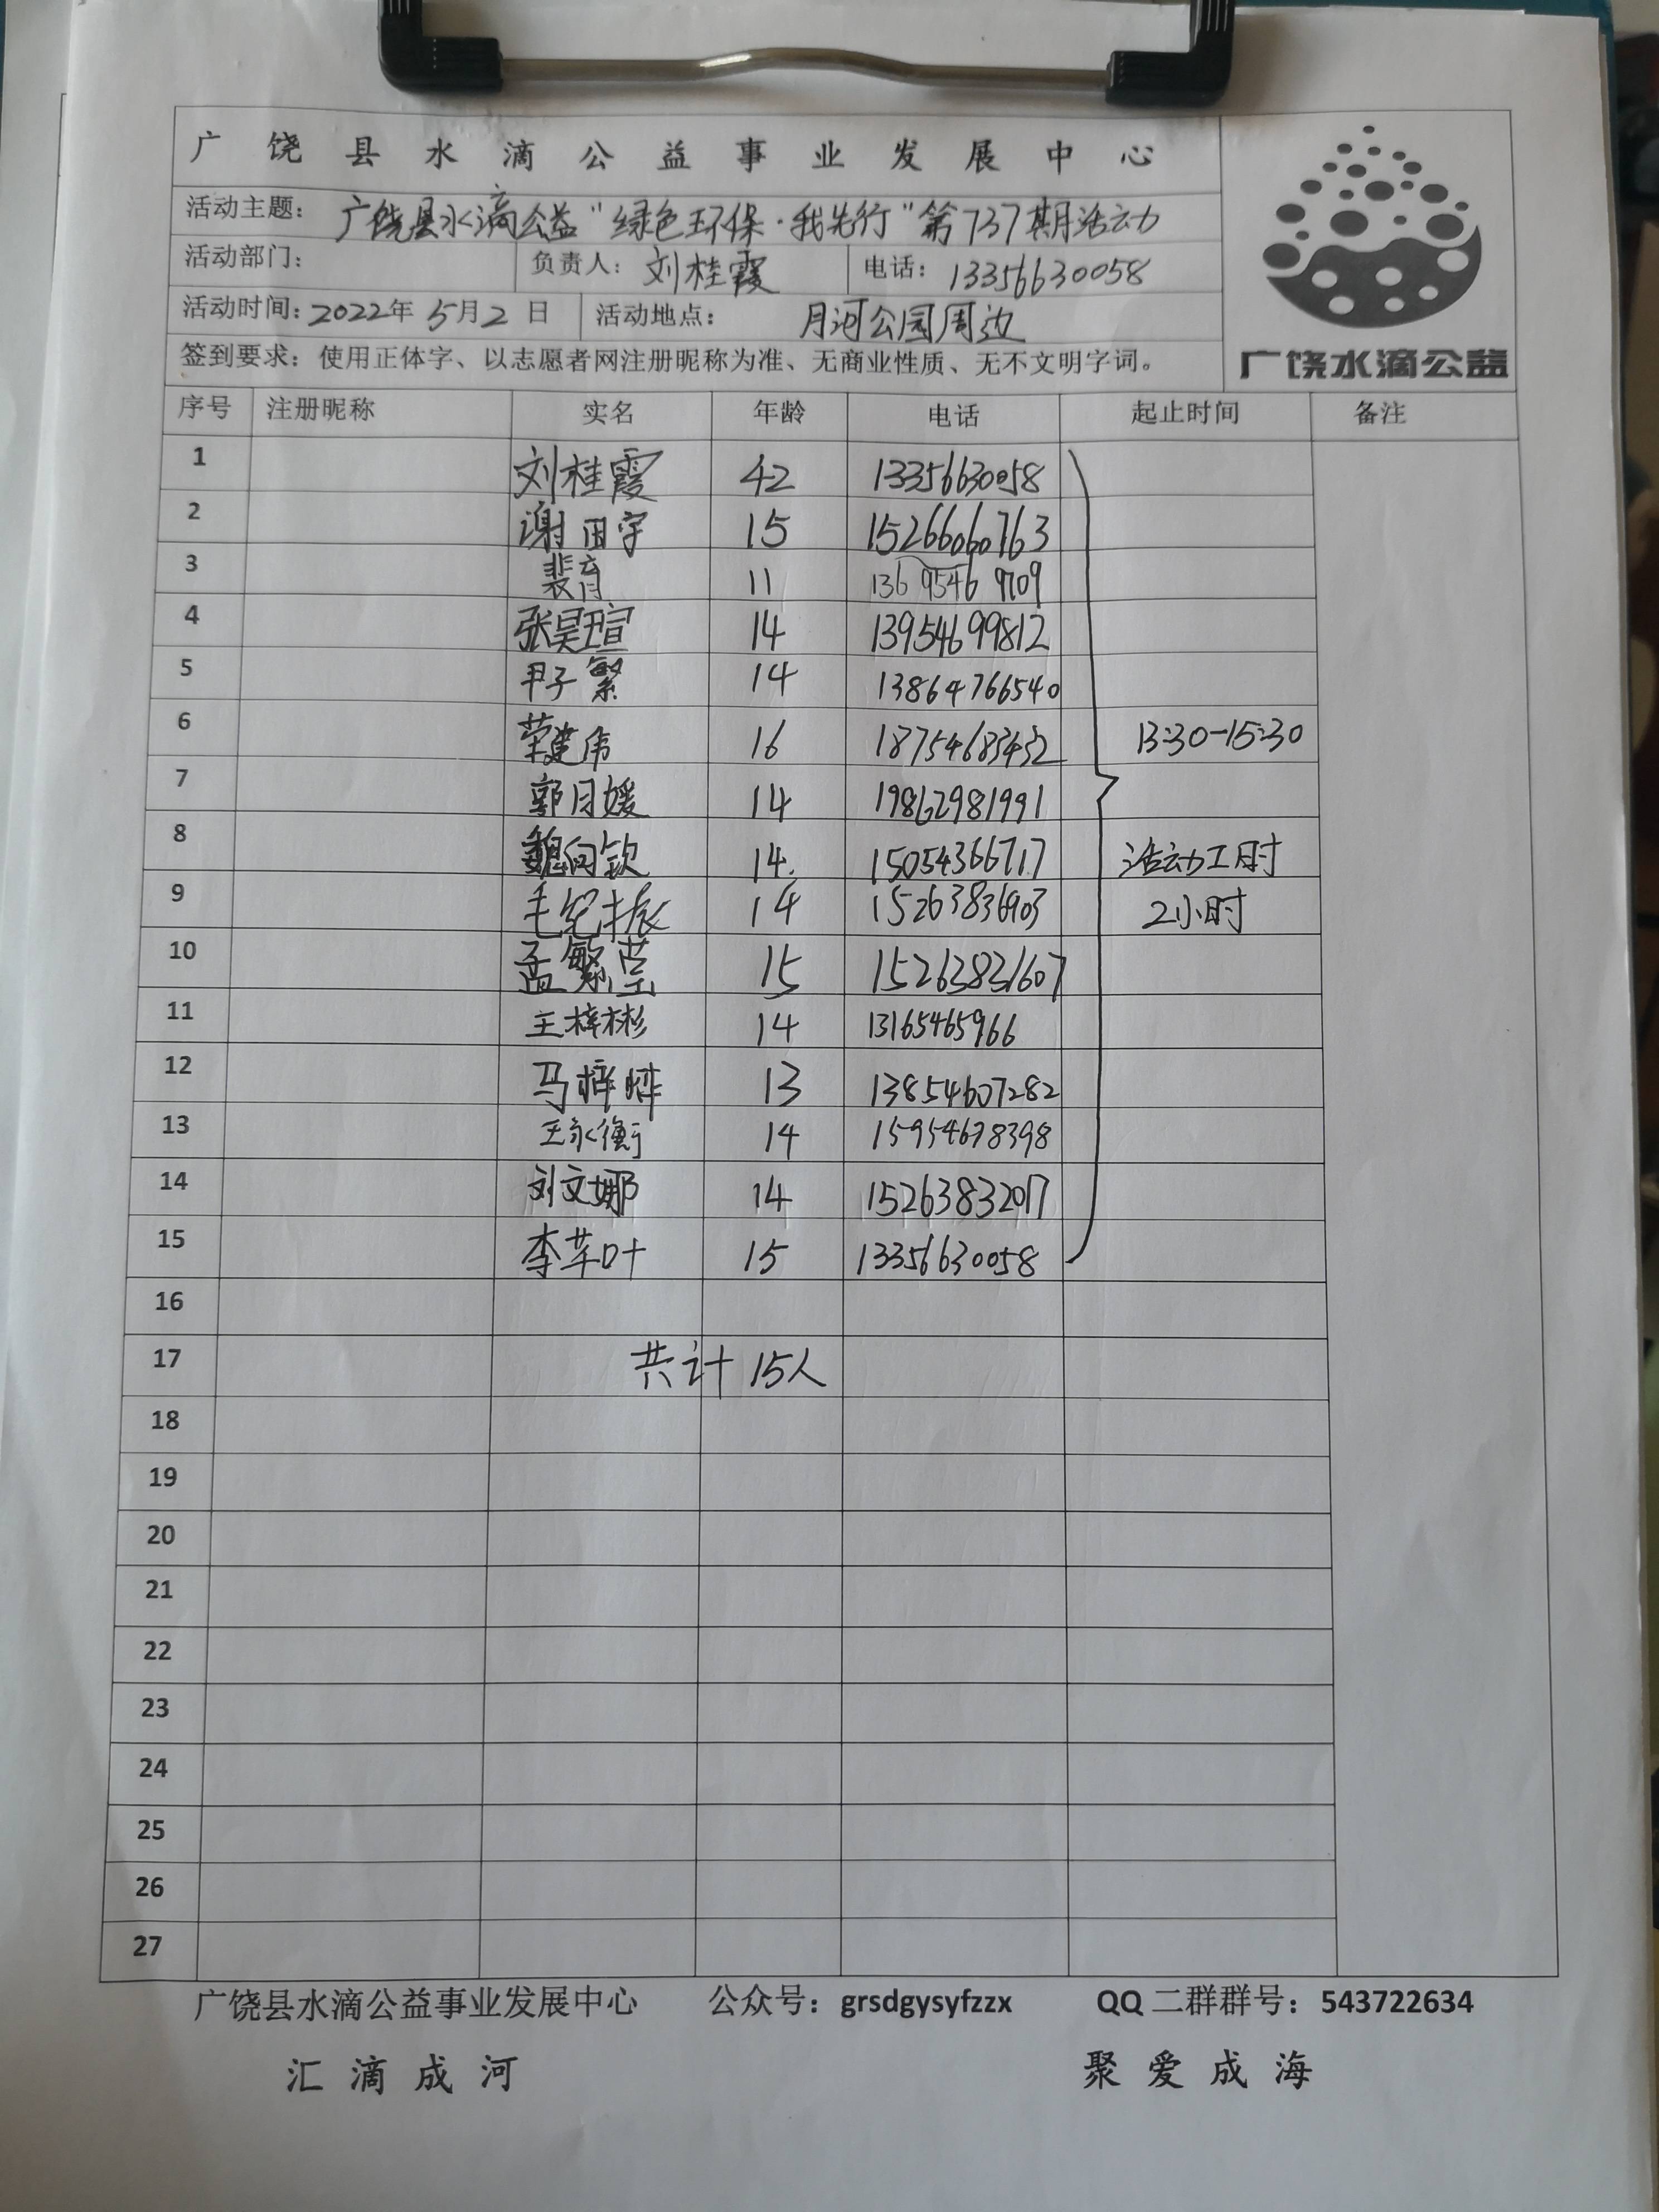 广饶县水滴公益事业发展中心
活动主题：广饶县水滴公益“绿色环保·我先行”第737期活动
活动部门： 负责人：刘桂霞 电话：13356630058
活动时间：2022年5月2日 活动地点：月河公园周边
签到要求：使用正体字、以志愿者网注册昵称为准、无商业性质、无不文明字词。
广饶水滴公益
序号 注册昵称 实名 年龄 电话 起止时间 备注
1 刘桂霞 42 13356630058
2 谢田宇 15 15266060763
3 裴育 11 13695469709
4 张昊瑄 14 13954699812
5 尹子繁 14 13864766540
6 荣建伟 16 18754683432 13:30-15:30
7 郭月媛 14 19862981991
8 魏向钦 14. 15054366717 活动工时
9 毛 振 14 15263836903 2小时
10 孟繁莹 15 15263831607
11 王梓彬 14 13165465966
12 马梓晔 13 13854607282
13 王永衡 14 15954678398
14 刘文娜 14 15263832017
15 李苹叶 15 13356630058
16
17 共计15人
18
19
20
21
22
23
24
25
26
27
广饶县水滴公益事业发展中心 公众号：grsdgysyfzzx QQ二群群号：543722634
汇滴成河 聚爱成海